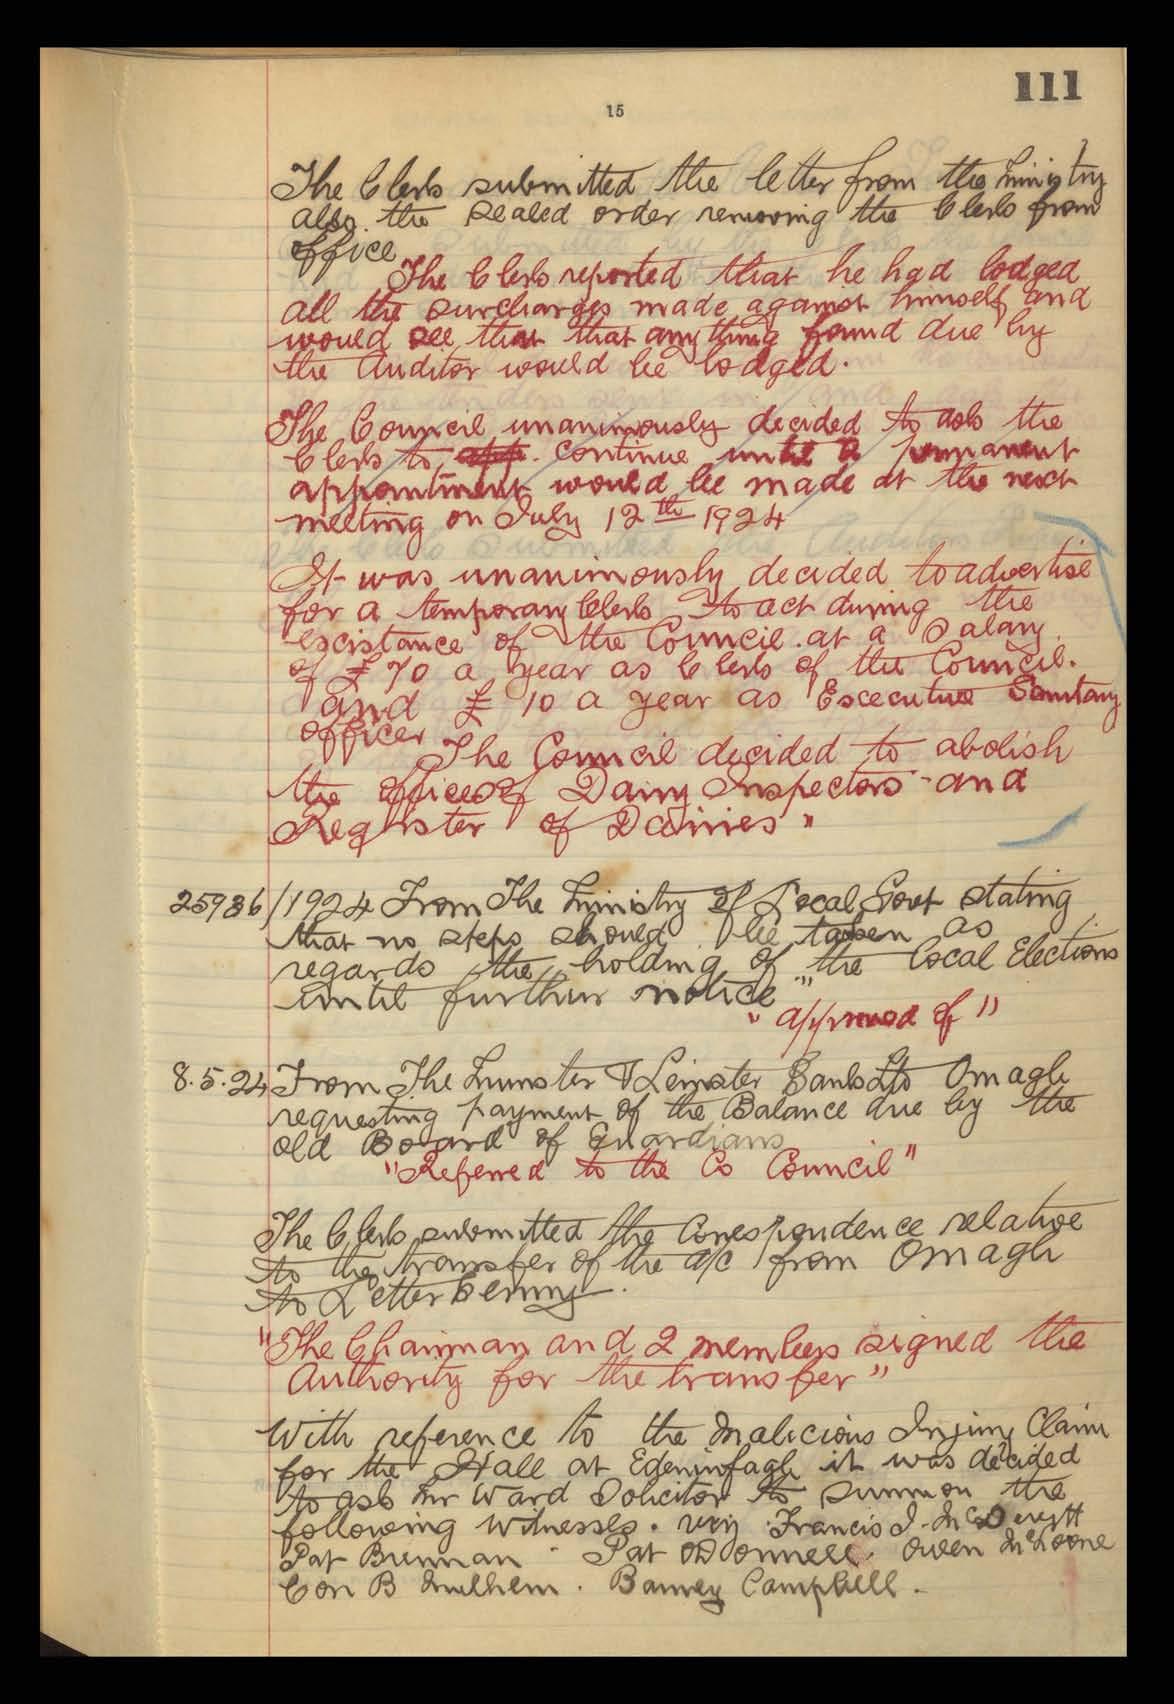 111
15
The Clerk submitted the letter from the Ministry
also the sealed order removing the Clerk from
office
The Clerk reported that he had lodged
all the surcharges made against himself and
would see that that anything found due by
the Auditor would be lodged.
The Council unanimously decided to ask the
Clerk to app. continue until a permanent
appointment would be made at the next
meeting on July 12th 1924
It was unanimously decided to advertise
for a temporary Clerk to act during the
excistance of the Council. at a Salary
of £70 a year as Clerk of the Council.
and £10 a year as Excecutive Sanitary
officer
The Council decided to abolish
the offices of Dairy Inspectors and
Register of Dairies"
25936/1924 From The Ministry of Local Govt stating
that no steps should be taken as
regards the holding of the local Elections
until further notice"
"approved of"
8.5.24 From The Munster & Leinster Bank Ltd Omagh
requesting payment of the Balance due by the
old Board of Guardians
"Referred to the Co Council"
The Clerk submitted the Correspondence relative
to the transfer of the a/c from Omagh
to Letterkenny.
"The Chairman and 2 members signed the
Authority for the transfer"
With reference to the Malicious Injury Claim
for the Hall at Edeninfagh it was decided
to ask Mr Ward Solicitor to summon the
following witnesses. viz Francis J. McDevitt
Pat Brennan . Pat O'Donnell. Owen McLoone
Con B Mulhern. Barney Campbell.